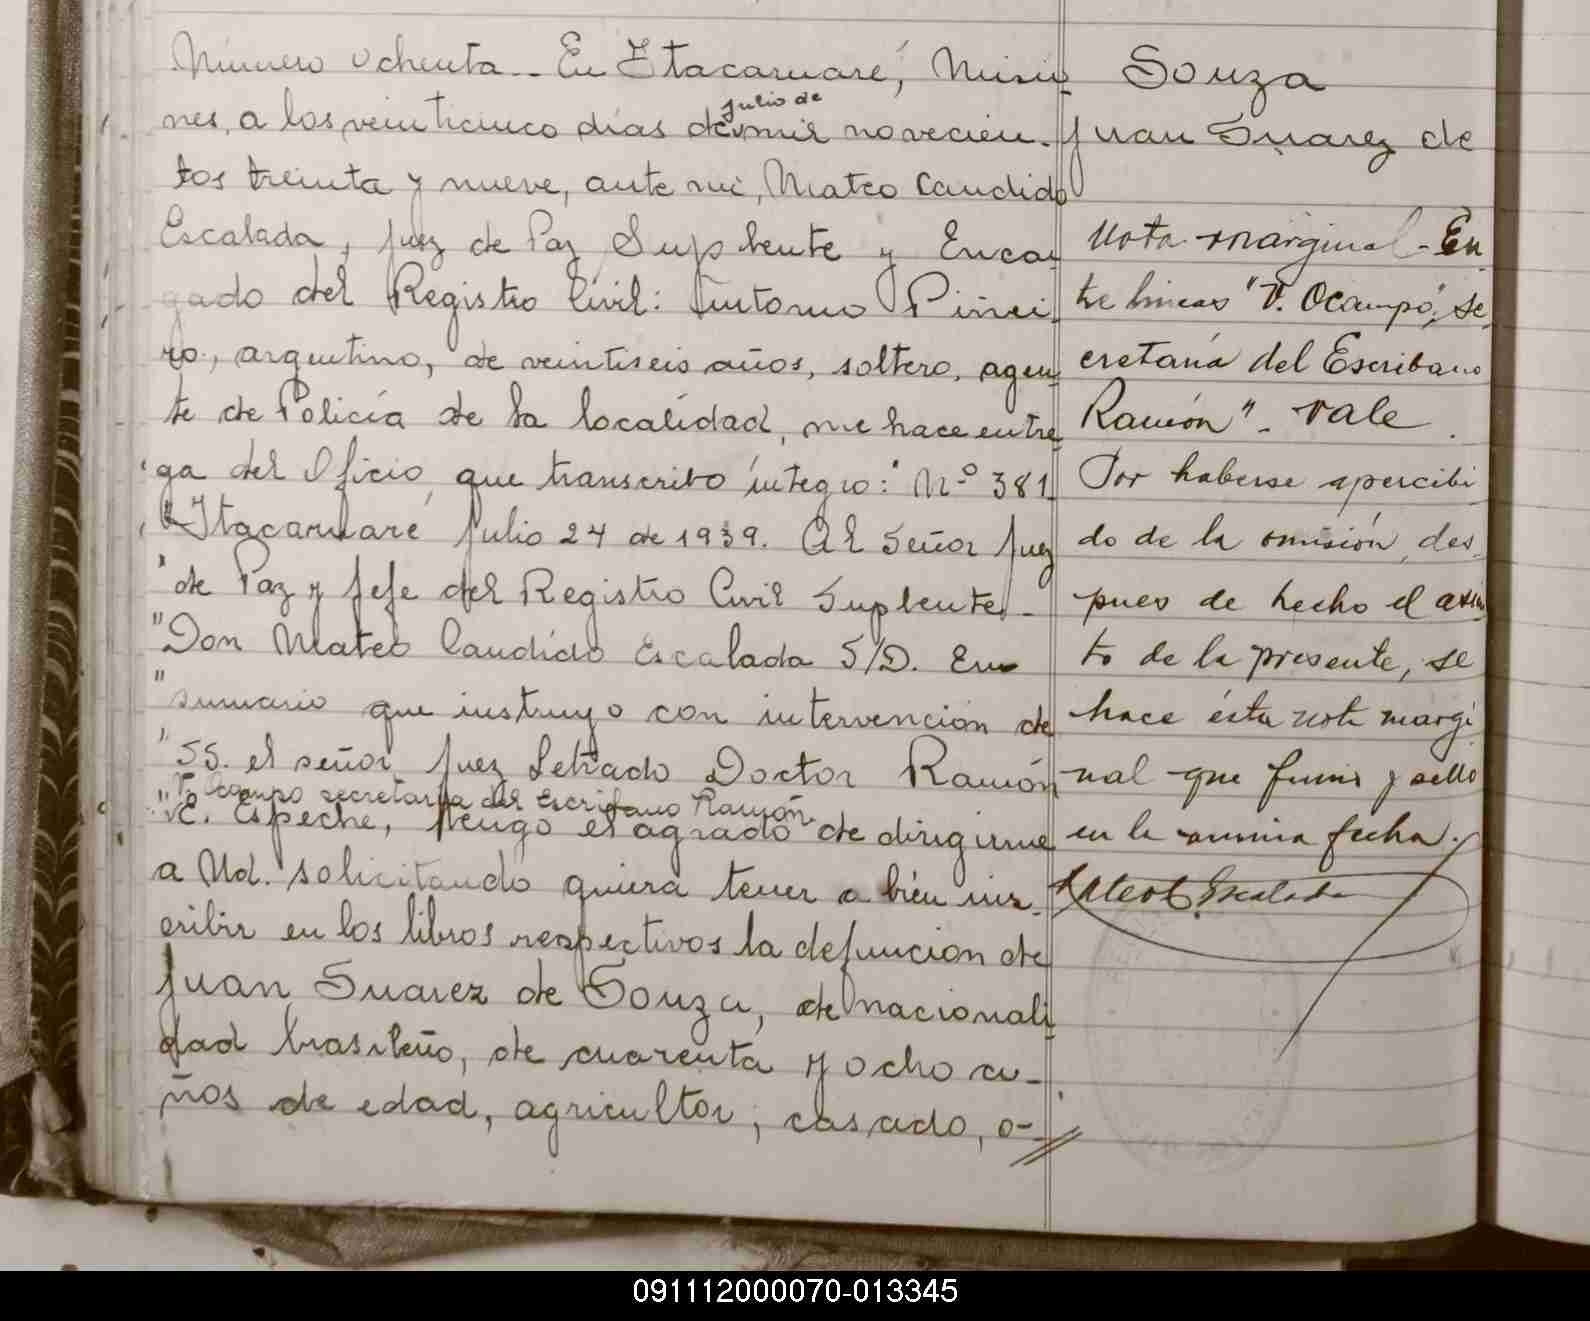 Número ochenta.. En Itacaruaré, Misio
nes, a los veinticinco días de julio de mil novecien-
tos treinta y nueve, ante mi, Mateo Candido
Escalada, Juez de Paz Suplente y Encar
gado del Registro Civil: Antonio Piñei-
ro, argentino, de veintiseis años, soltero, agen
te de Policía de la localidad, me hace entre
ga del Oficio, que transcribo íntegro: "Nº 381
"Itacaruaré Julio 24 de 1939. Al Señor Juez
"de Paz y Jefe del Registro Civil Suplente -
"Don Mateo Candido Escalada S/D. En
"sumario que instruyo con intervención de
"SS. el señor Juez Letrado Doctor Ramón
V. Ocampo secretaría del Escribano Ramón
"C. Espeche, tengo el agrado de dirigirme
a Ud. solicitando quiera tener a bién ins-
cribir en los libros respectivos la defunción de
Juan Suarez de Souza, de nacionali
dad brasileño, de cuarenta y ocho a-
ños de edad, agricultor, casado, o-//
Souza
Juan Suarez de
Nota marginal - En
tre lineas "V. Ocampo, se
cretaría del Escribano
Ramón" - vale
Por haberse apercibi
do de la omisión, des
pues de hecho el asien
to de la presente, se
hace ésta nota margi
nal que firmo y sello
en la misma fecha.
Mateo C. Escalada
091112000070-013345